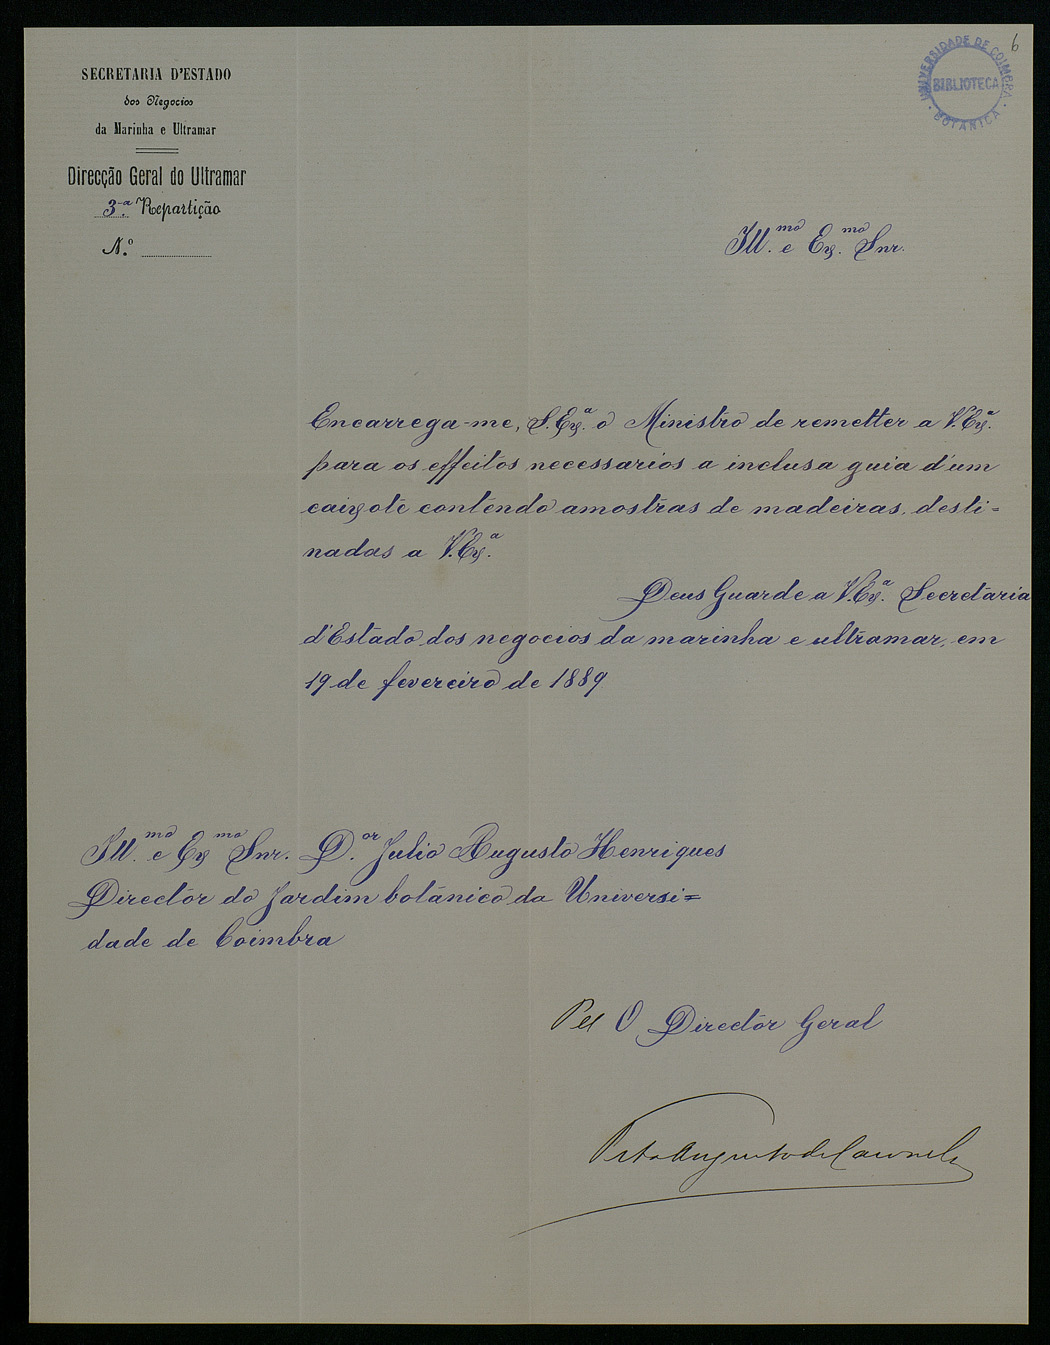 SECRETARIA D'ESTADO
dos Negocios
da Marinha e Ultramar
Direcção Geral do Ultramar
3.ª Repartição
N.º
6
UNIVERSIDADE DE COIMBRA
BIBLIOTECA
BOTANICA
Ill.mo e Ex.mo Snr.
Encarrega-me, S. Ex.ª o Ministro de remetter a V. Ex.ª
para os effeitos necessarios a inclusa guia d'um
caixote contendo amostras de madeiras, desti=
nadas a V. Ex.ª
Deus Guarde a V. Ex.ª Secretaria
d'Estado dos negocios da marinha e ultramar, em
19 de fevereiro de 1889
Ill.mo e Ex.mo Snr. D.or Julio Augusto Henriques
Director do Jardim botanico da Universi=
dade de Coimbra
Pel O Director Geral
Augusto de